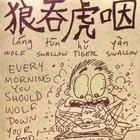 狼吞虎咽
láng tūn hǔ yàn
WOLF SWALLOW TIGER SWALLOW
EVERY
MORNING
YOU
SHOULD
WOLF
DOWN
YOUR